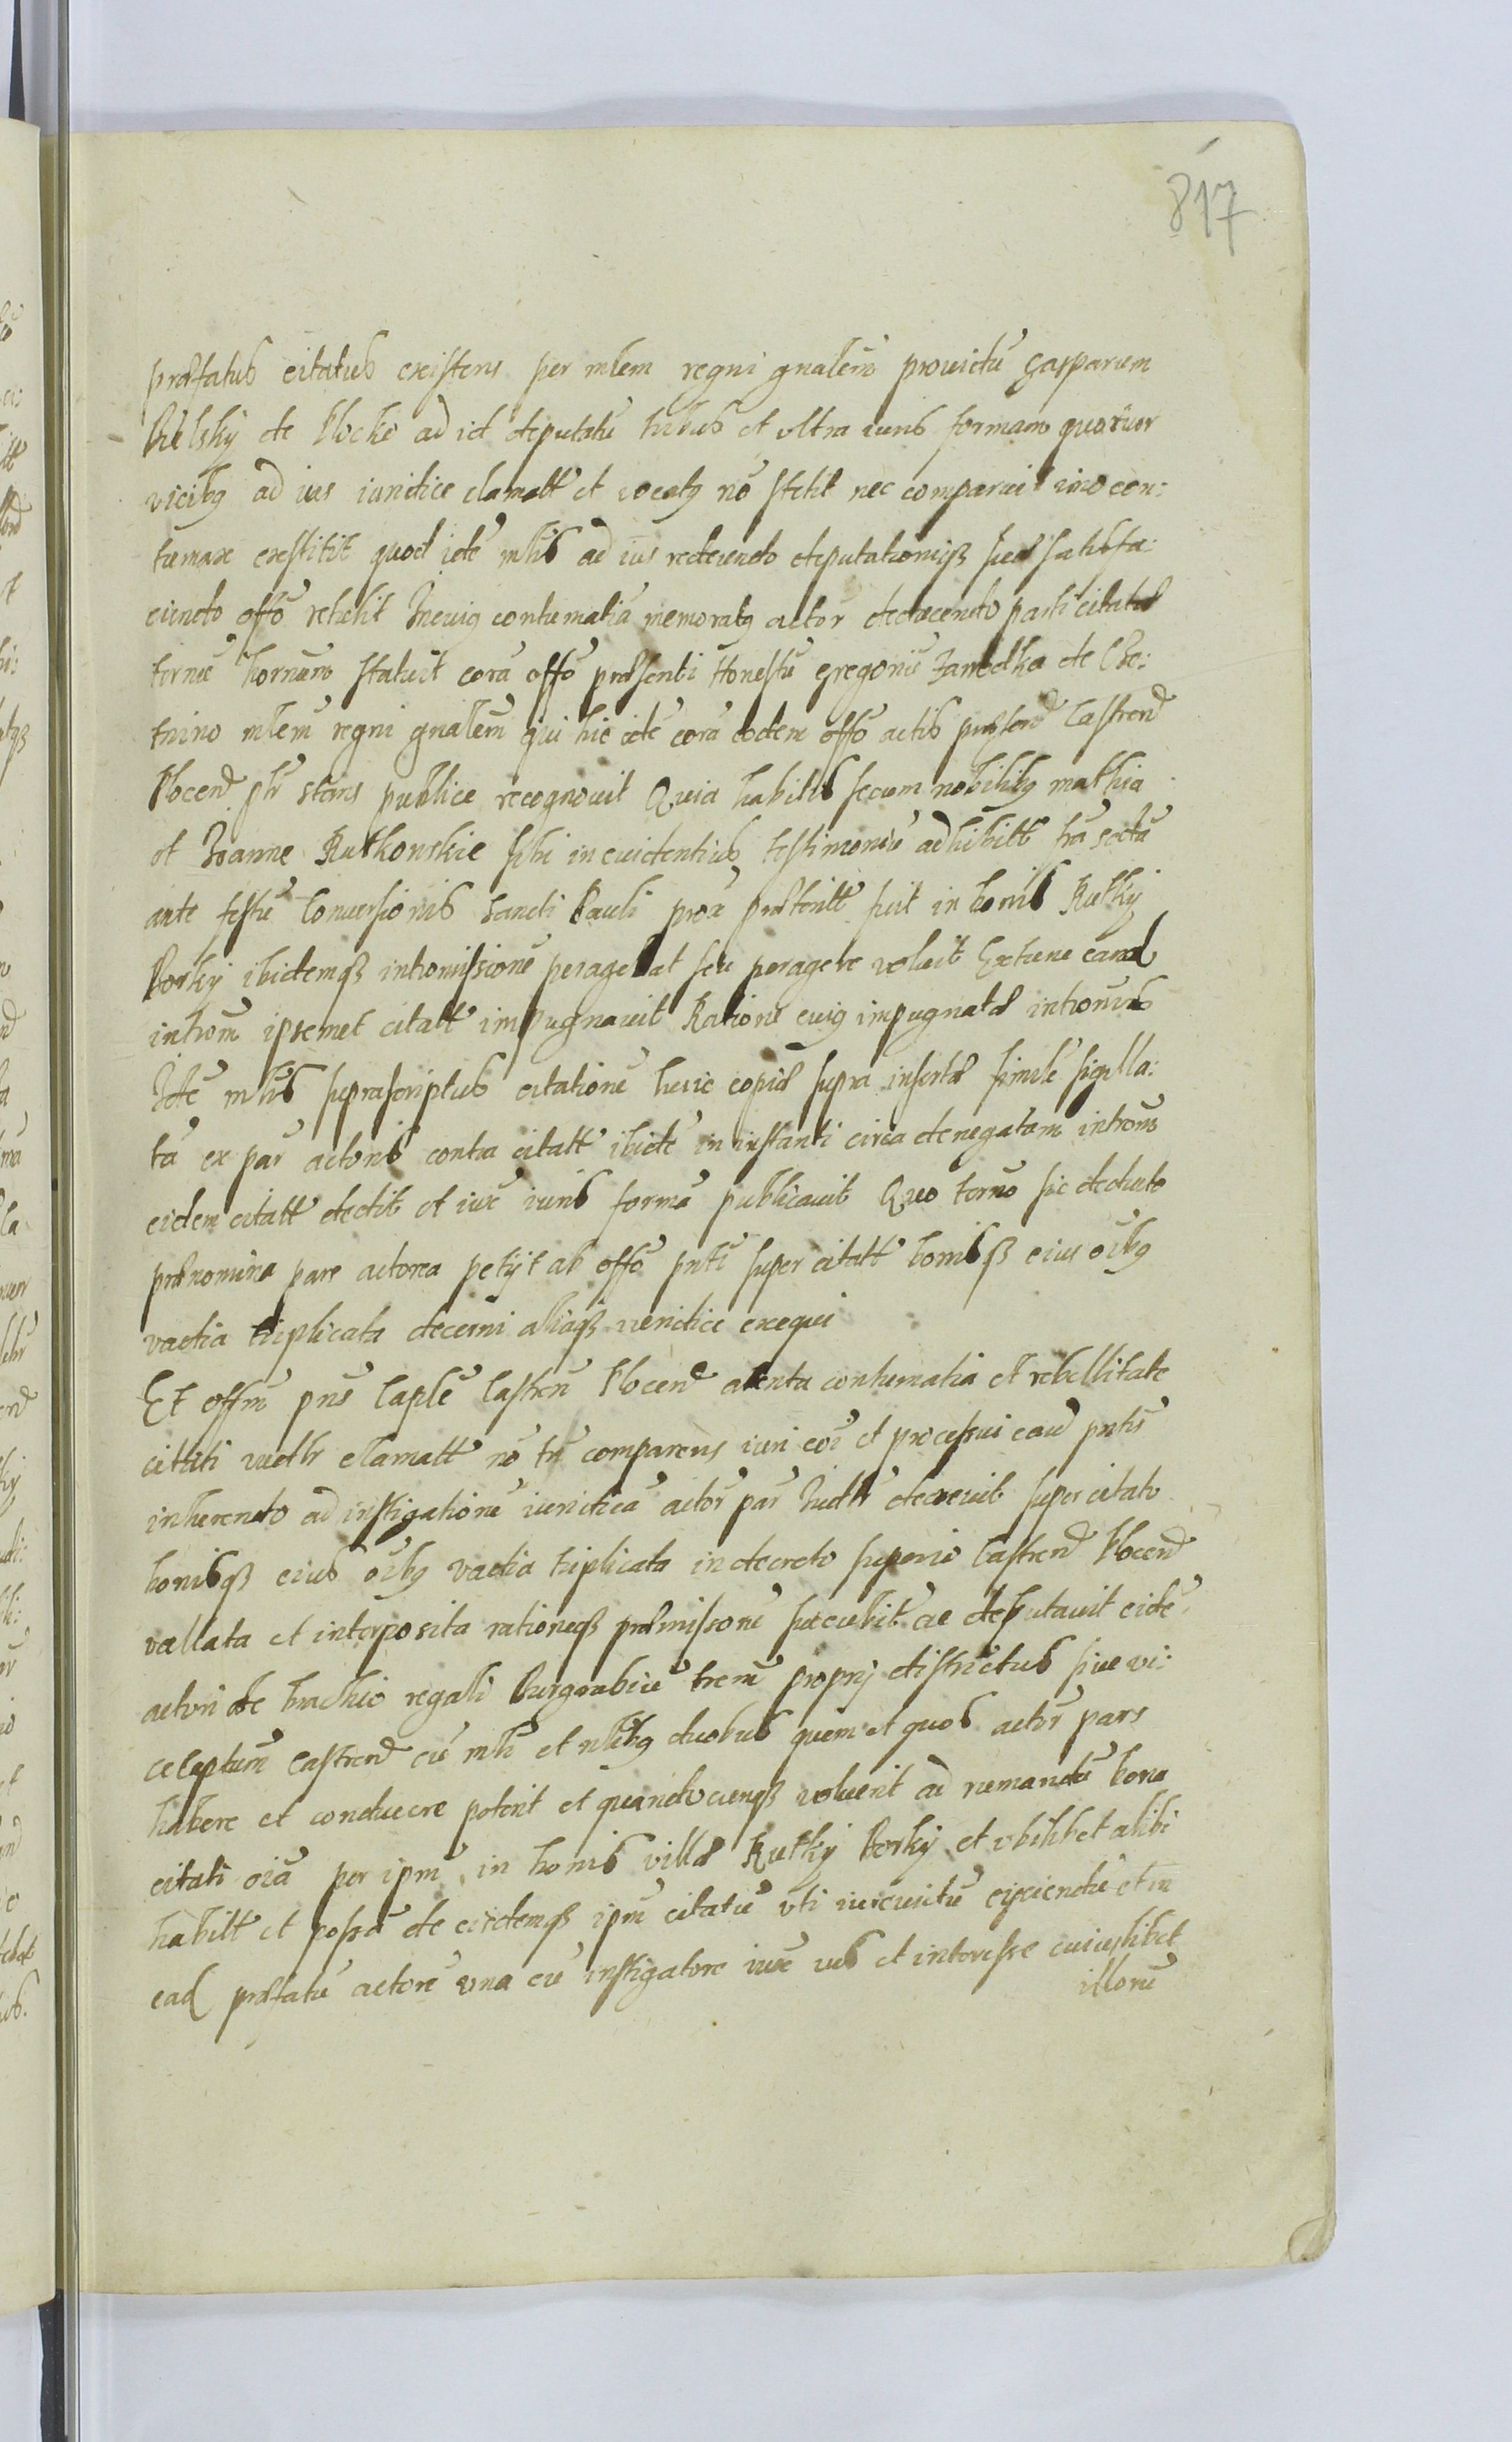 817
præfatus citatus existens per mlem regni gnalem prouidũ Gasparum
Bielsky de Plocko ad id deputatũ tribus et vltra iuris formam quatuor
vicibꝰ ad ius iuridice clamatt et vocatꝰ nõ stetit nec comparuit imo con:
tumax exstitit quod idẽ mlis ad ius redeundo deputationiqꝫ suæ satisfa:
ciendo offõ retulit In cuiꝰ contumatiã memoratꝰ actor deducendo parti citatæ
ternũ hornum statuit corã offõ præsenti Honestũ Gregoriũ de
mlem regni gnalẽm qui hic idẽ corã eodem offõ actis Castrenᵈ
Plocenᵈ plr stans publice recognouit Quia habitis secum nobilibꝰ mathia
et Joanne Rutkonskie sibi in euidentiuꝰ testimoniũ adhibitt fra secũda
ante festũ Conuersionis Sancti Pauli prox præteritt fuit in bonis Rutky
Borky ibidemqꝫ intromissionẽ peragebat seu peragere voluit Extunc eand
introm̃ ipsemet citatt impugnauit Ratione cuiꝰ impugnatæ intromis
Idẽ mlis suprascriptus citationẽ huic copiæ supra insertæ similẽ sigilla:
tã ex par actoris contra citatt ibidẽ in instanti circa denegatam introm̃
eidem citatt dedit et iux iuris formã publicauit Quo termo sic deducto
prænomina pars actorea petijt ab offõ pnti super citatt bonisqꝫ eius oibꝰ
vadia triplicata decerni aliaqꝫ iuridice exequi
Et offm pns Caple Castren Plocenᵈ atenta contumatia et rebellitate
citati iudlr clamatt nõ tñ comparens iuri coi et processui caus pntis
inherendo ad instigationẽ iuridicã actor par Iudlr decreuit super citato
bonisqꝫ eius oibꝰ vadia triplicata in decreto superio Castrenᵈ Plocenᵈ
vallata et interposita rationeqꝫ præmissorũ succubit ac deputauit eidẽ
actori de brachio regali Burgrabiũ trem proprij districtus siue vi:
cecaptum Castrenᵈ cũ mli et nlibꝰ duobus quem et quos actor pars
habere et conducere poterit et quandocunqꝫ voluerit ad rumandũ bona
citati oia per ipm in bonis villæ Rutky Borky et vbilibet alibi
habitt et possa de eisdemqꝫ ipm citatũ vti iureuictũ eijciendũ et in
ead præfatũ actorẽ vna cũ instigatore iux ius et interesse cuiuslibet
illorũ